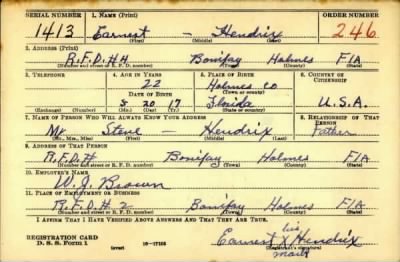 SERIAL NUMBER 1. NAME (Print) ORDER NUMBER
1413 Earnest — Hendrix 246
(First) (Middle) (Last)
2. ADDRESS (Print)
R.F.D. #4 Bonifay Holmes Fla
(Number and street or R. F. D. number) (Town) (County) (State)
3. TELEPHONE 4. AGE IN YEARS 5. PLACE OF BIRTH 6. COUNTRY OF CITIZENSHIP
22 Holmes Co
DATE OF BIRTH (Town or county)
5 20 17 Floida U.S.A.
(Exchange) (Number) (Mo.) (Day) (Yr.) (State or country)
7. NAME OF PERSON WHO WILL ALWAYS KNOW YOUR ADDRESS 8. RELATIONSHIP OF THAT PERSON
Mr Steve — Hendrix Father
(Mr., Mrs., Miss) (First) (Middle) (Last)
9. ADDRESS OF THAT PERSON
R.F.D.# Bonifay Holmes Fla
(Number and street or R. F. D. number) (Town) (County) (State)
10. EMPLOYER'S NAME
W.J. Brown
11. PLACE OF EMPLOYMENT OR BUSINESS
R.F.D.# 2 Bonifay Holmes Fla
(Number and street or R. F. D. number) (Town) (County) (State)
I AFFIRM THAT I HAVE VERIFIED ABOVE ANSWERS AND THAT THEY ARE TRUE.
his
REGISTRATION CARD Earnest X Hendrix
D. S. S. Form 1 (over) 16—17105 (Registrant's signature)
mark